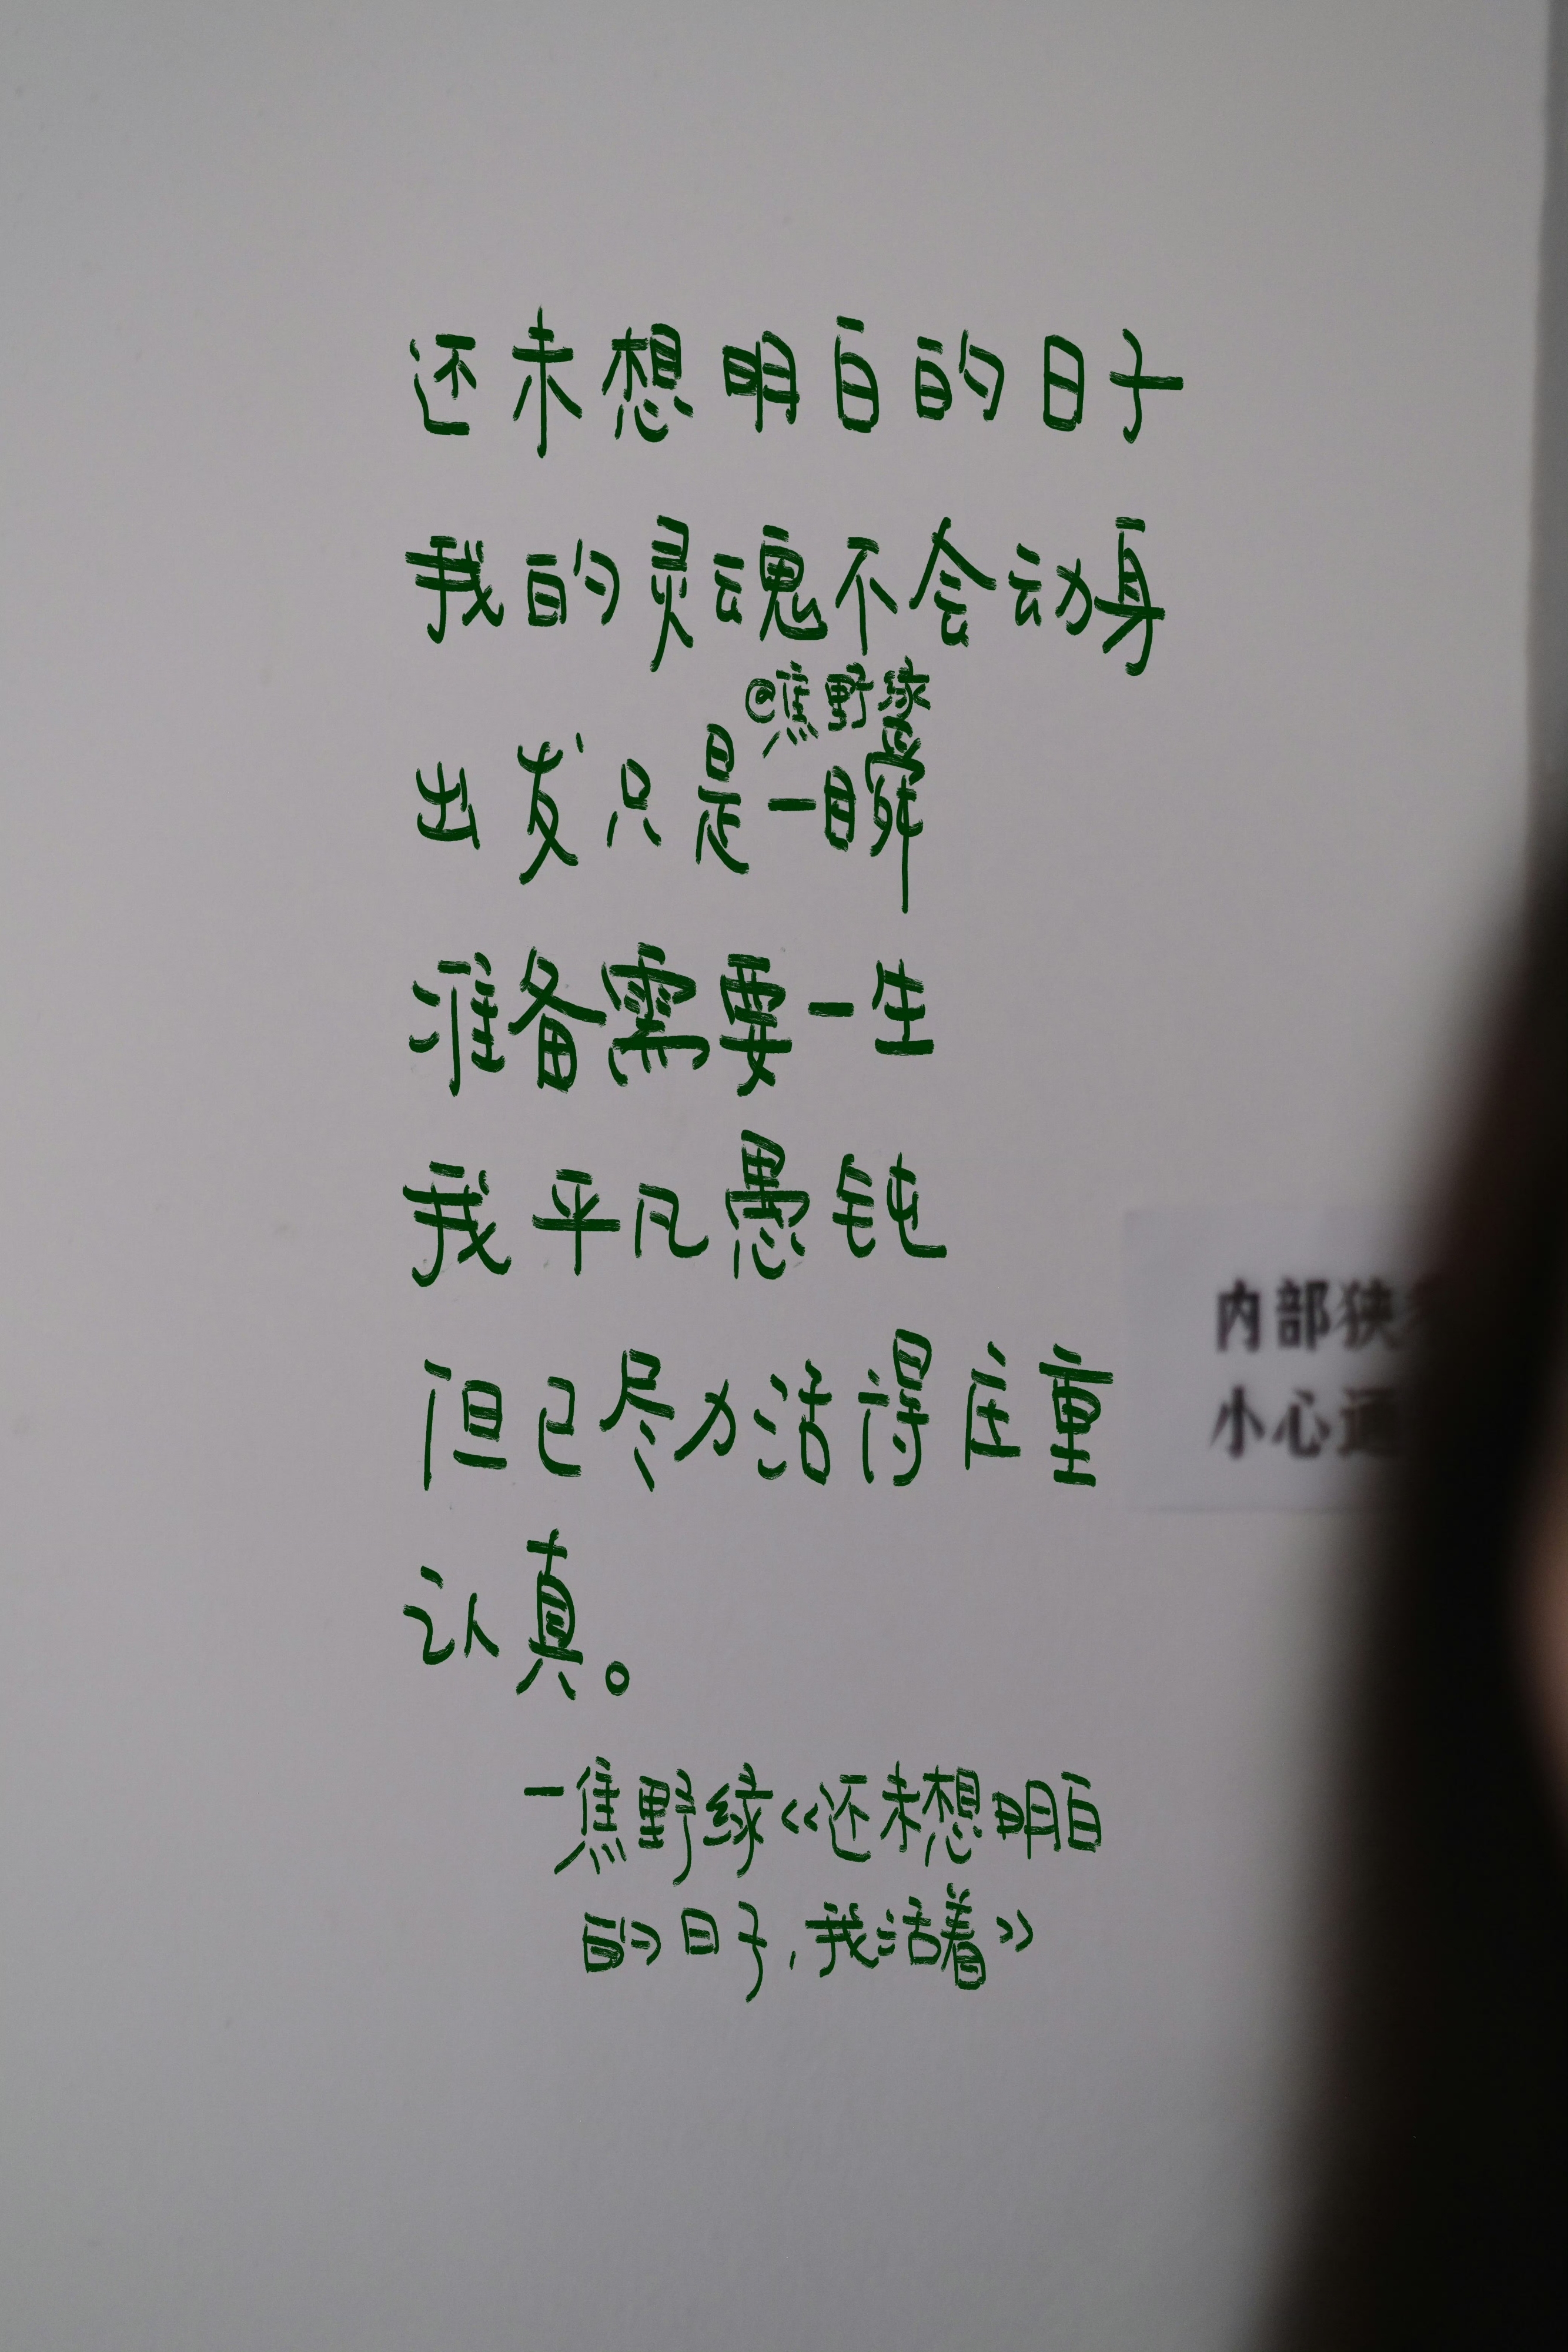 还未想明白的日子
我的灵魂不会动身
@焦野绿
出发只是一瞬
准备需要一生
我平凡愚钝
但已尽力活得庄重
认真。
内部狭
小心通
一焦野绿《还未想明白
的日子，我活着》